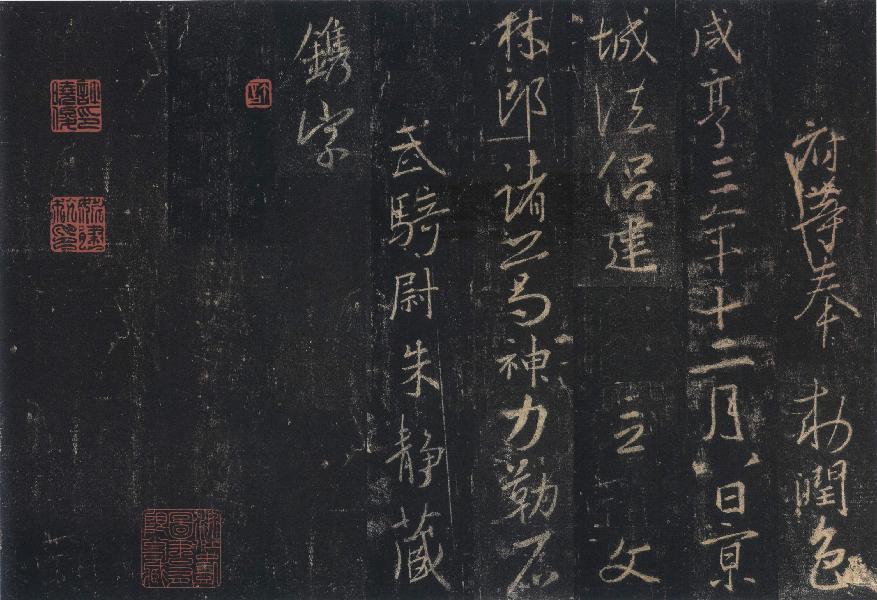 府等奉　敕潤色
咸亨三年十二月八日京
城法侶建　立　文
林郎諸葛神力勒石
武騎尉朱静藏
鐫字